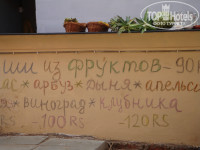 TopHotels
ши из фруктов - 90
ас * арбуз * дыня * апельси
я * виноград * клубника
RS -100RS -120RS